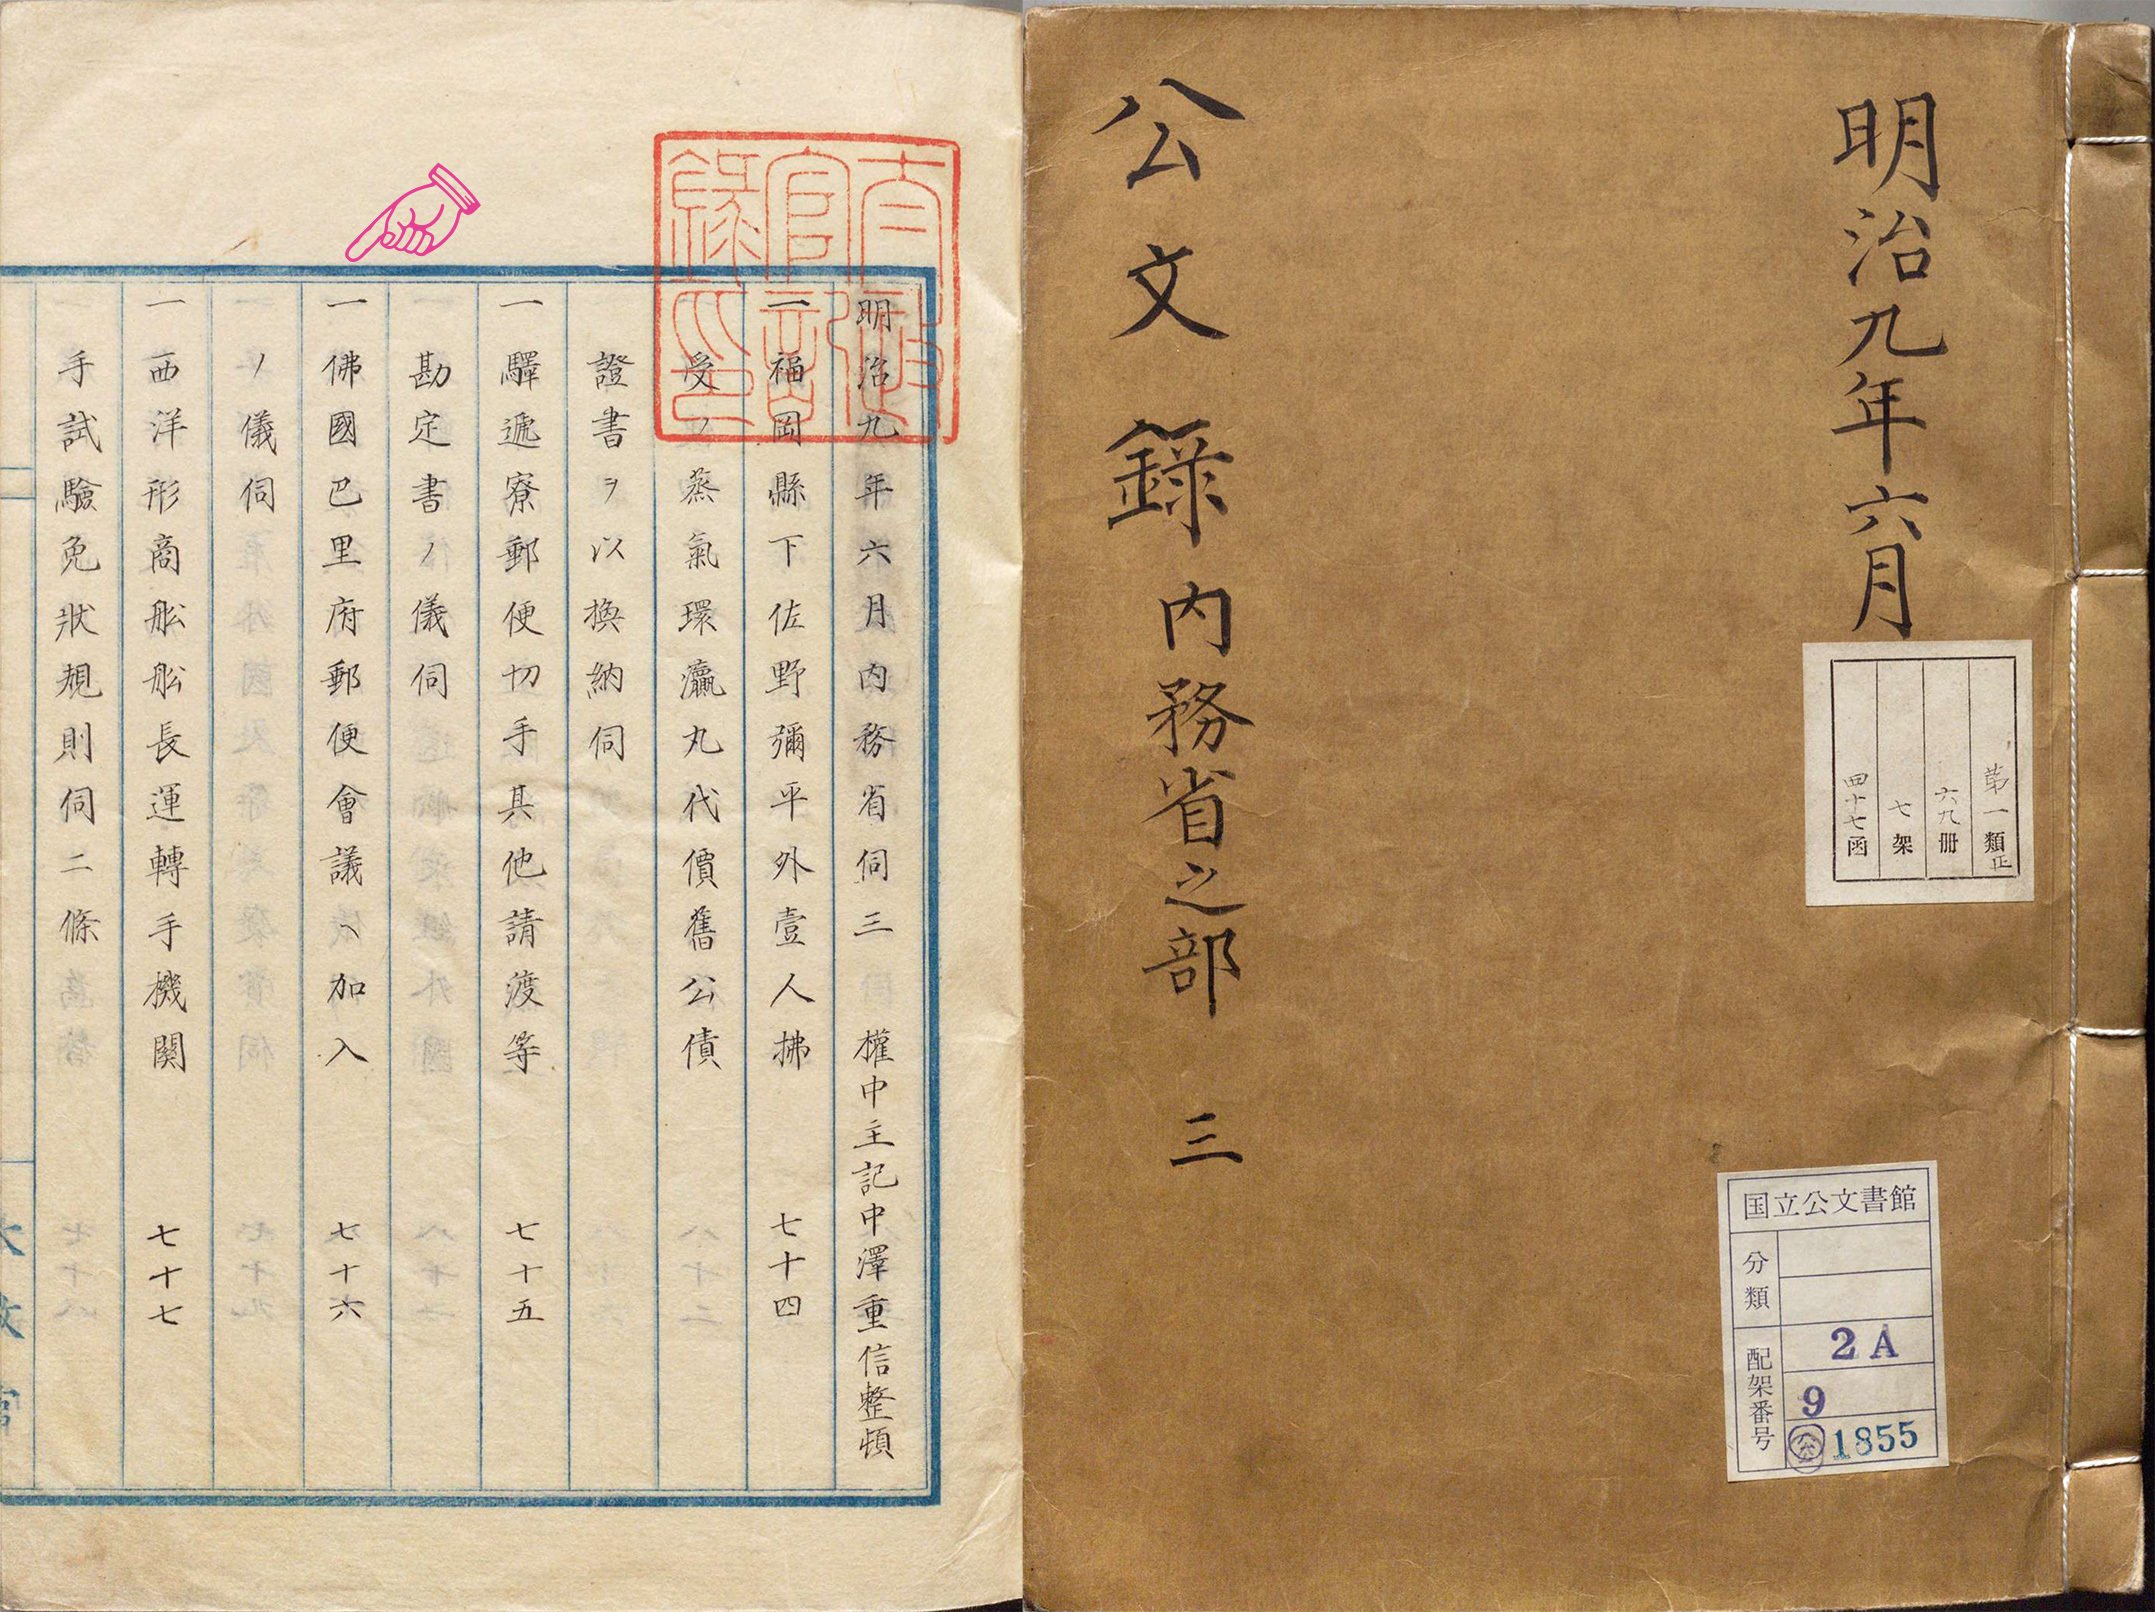 明治九年六月
公文錄 内務省之部 三
第一類 正
六九册
七架
四十七函
国立公文書館
分類
配架番号
2A
9
公 1855
太政官記錄印
明治九年六月内務省伺三 權中主記中澤重信整頓
一福岡縣下佐野彌平外壹人拂 七十四
受ノ蒸氣環瀛丸代價舊公債
證書ヲ以換納伺
一驛遞寮郵便切手其他請渡等 七十五
勘定書ノ儀伺
一佛國巴里府郵便會議ヘ加入 七十六
ノ儀伺
一西洋形商舩舩長運轉手機関 七十七
手試驗免狀規則伺二條
太政官